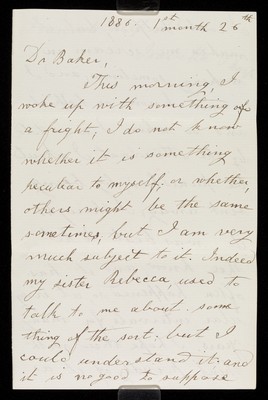 1886. 1st month 26th
Dr Baker,
This morning, I
woke up with something of
a fright; I do not know
whether it is something
peculiar to myself; or whether,
others might be the same
sometimes, but I am very
much subject to it. Indeed
my sister Rebecca, used to
talk to me about some
thing of the sort: but I
could understand it: and
it is no good to suppose